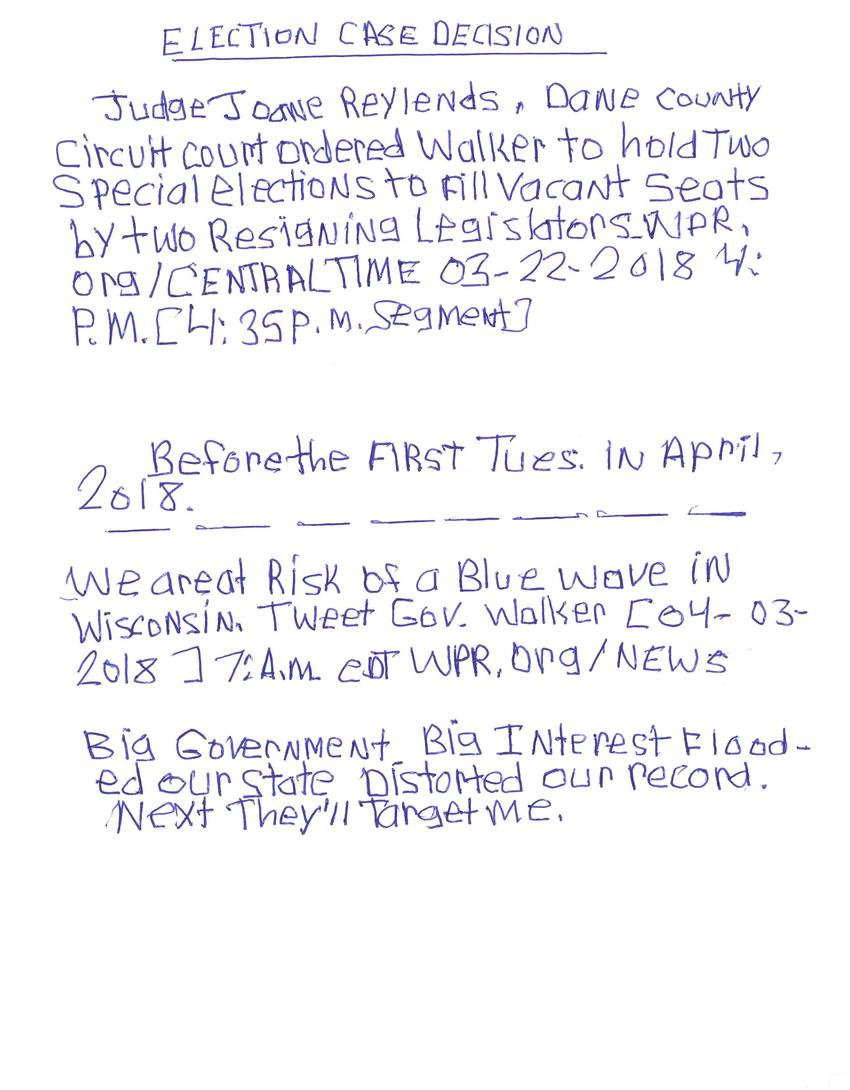 ELECTION CASE DECISION
Judge Joane Reylends, Dane County
Circuit court ordered Walker to hold Two
Special elections to Fill Vacant Seats
by two Resigning Legislators WPR.
org/CENTRALTIME 03-22-2018 4:
P.M. [4:35 P.M. Segment]
Before the FIRST Tues. IN April,
2018.
We are at Risk of a Blue Wave in
Wisconsin. Tweet Gov. Walker [04-03-
2018] 7: A.M. EDT WPR.org/NEWS
Big Government Big Interest Flood-
ed our state Distorted our record.
Next They'll Target Me.